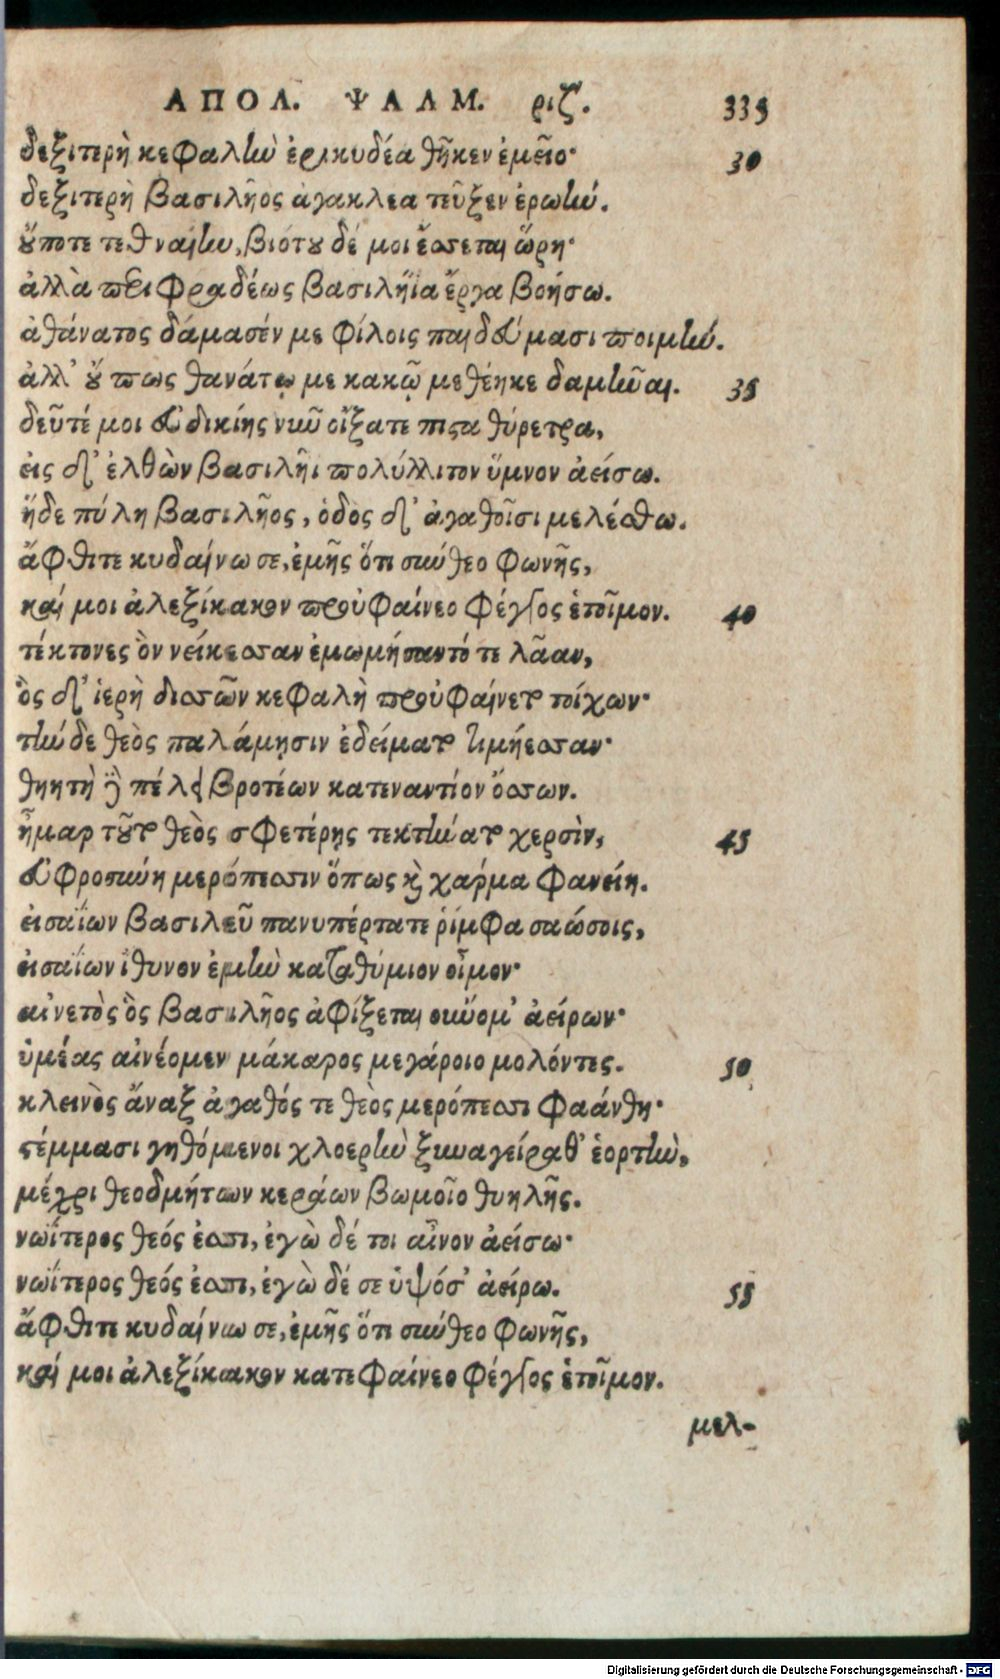 ΑΠΟΛ. ΨΑΛΜ. ριζʹ. 335
δεξιτερὴ κεφαλὴν ἐρικυδέα θῆκεν ἐμεῖο·
30
δεξιτερὴ βασιλῆος ἀγακλέα τεῦξεν ἐρωήν.
οὔποτε τεθναίην, βιότου δέ μοι ἔσσεται ὥρη·
ἀλλὰ περιφραδέως βασιλήϊα ἔργα βοήσω.
ἀθάνατος δάμασέν με φίλοις παιδεύμασι ποιμήν.
ἀλλ' οὔπως θανάτῳ με κακῷ μεθέηκε δαμῆναι.
35
δεῦτέ μοι εὐδικίης νῦν οἴξατε πιστὰ θύρετρα,
εἰς δ' ἐλθὼν βασιλῆι πολύλλιτον ὕμνον ἀείσω.
ἥδε πύλη βασιλῆος, ὁδὸς δ' ἀγαθοῖσι μελέσθω.
ἄφθιτε κυδαίνω σε, ἐμῆς ὅτι σύνθεο φωνῆς,
καί μοι ἀλεξίκακον προὐφαίνεο φέγγος ἑτοῖμον.
40
τέκτονες ὃν νείκεσσαν ἐμωμήσαντό τε λᾶαν,
ὃς δ' ἱερὴ δισσῶν κεφαλὴ προὐφαίνετο τοίχων·
τήνδε θεὸς παλάμῃσιν ἐδείματο τιμήεσσαν·
θηητὴ γὰρ πέλει βροτέων κατεναντίον ὄσσων.
ἦμαρ τοῦτο θεὸς σφετέρῃς τεκτήνατο χερσὶν,
45
εὐφροσύνη μερόπεσσιν ὅπως καὶ χάρμα φανείη.
εἰσαΐων βασιλεῦ πανυπέρτατε ῥίμφα σαώσοις,
εἰσαΐων ἴθυνον ἐμὴν καταθύμιον οἶμον·
αἰνετὸς ὃς βασιλῆος ἀφίξεται οὔνομ' ἀείρων·
ὑμέας αἰνέομεν μάκαρος μεγάροιο μολόντες.
50
κλεινὸς ἄναξ ἀγαθός τε θεὸς μερόπεσσι φαάνθη·
στέμμασι γηθόμενοι χλοερὴν ξυναγείραθ' ἑορτὴν,
μέχρι θεοδμήτων κεράων βωμοῖο θυηλῆς.
νωΐτερος θεός ἐσσι, ἐγὼ δέ τοι αἶνον ἀείσω·
νωΐτερος θεός ἐσσι, ἐγὼ δέ σε ὑψόσ' ἀείρω.
55
ἄφθιτε κυδαίνω σε, ἐμῆς ὅτι σύνθεο φωνῆς,
καί μοι ἀλεξίκακον κατεφαίνεο φέγγος ἑτοῖμον.
μελ-
Digitalisierung gefördert durch die Deutsche Forschungsgemeinschaft - DFG